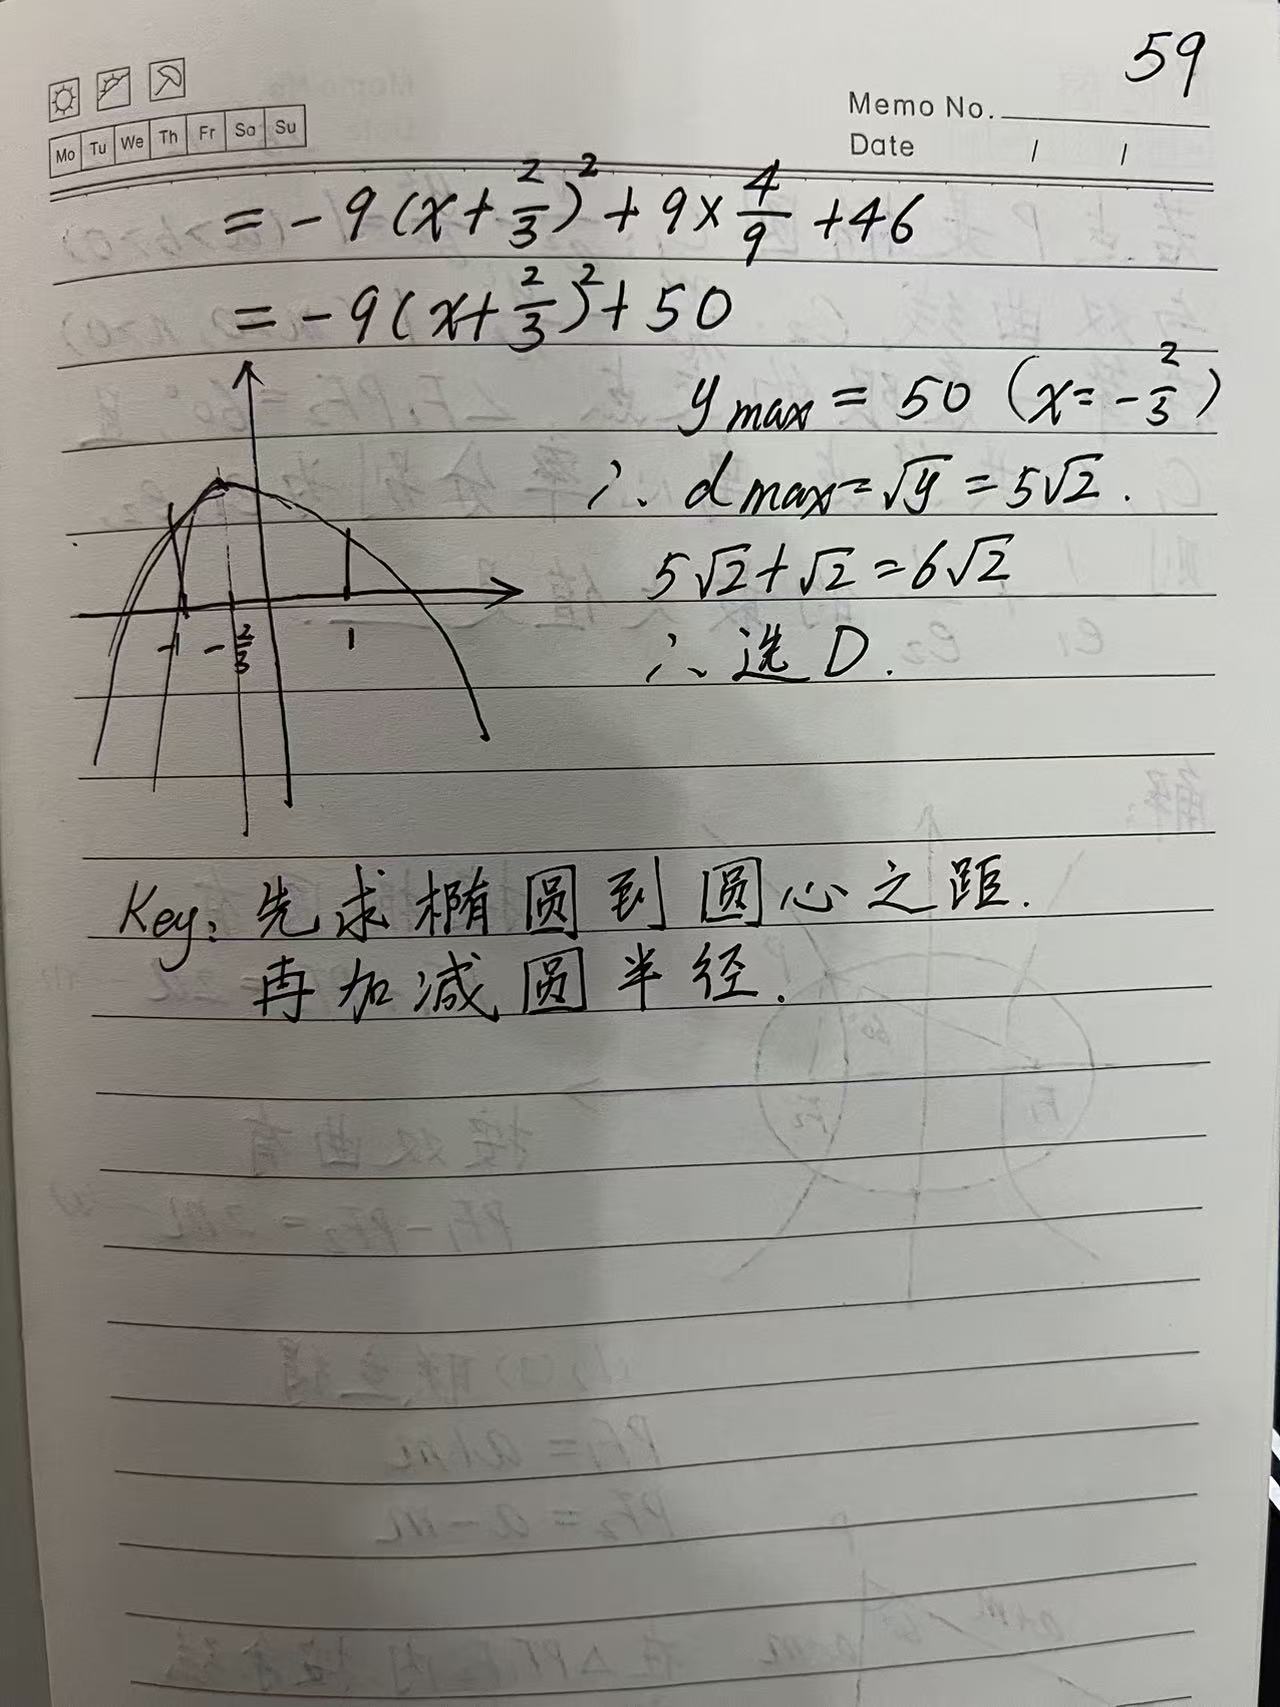 59
Memo No.
Mo Tu We Th Fr Sa Su
Date / /
= -9(x+2/3)²+9×4/9+46
= -9(x+2/3)²+50
y max = 50 (x=-2/3)
∴ d max=√y=5√2.
5√2+√2=6√2
∴ 选 D.
-1 -2/3 1
Key: 先求椭圆到圆心之距.
再加减圆半径.